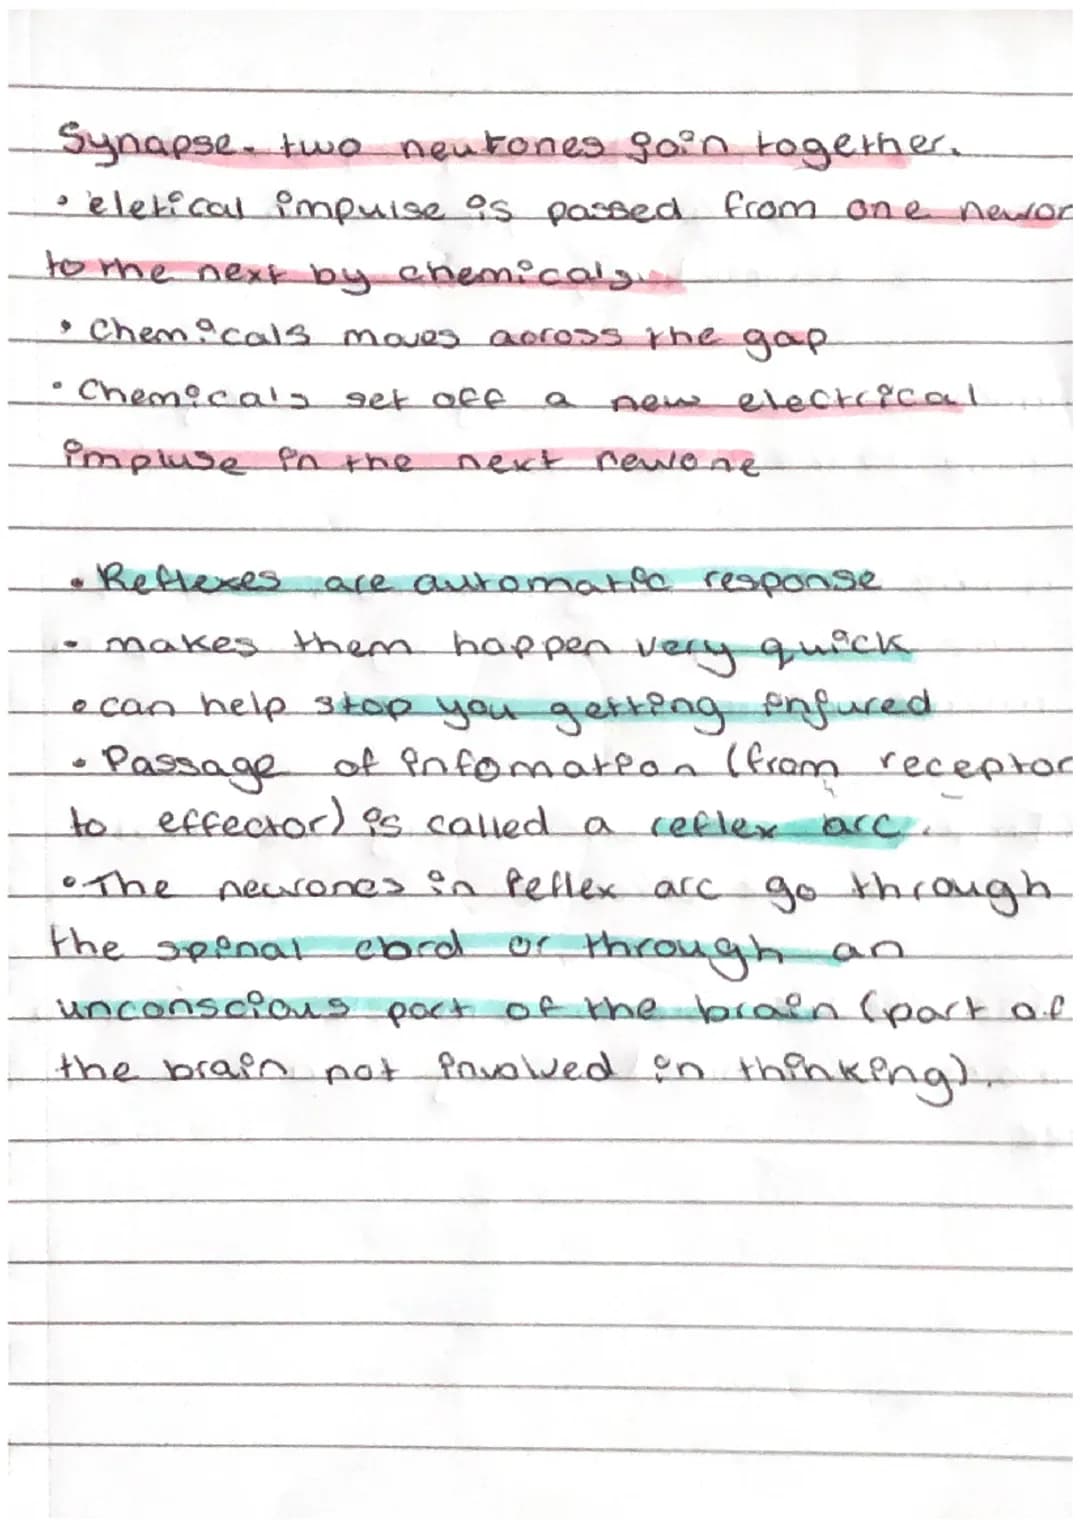 Synapse - two neurones join together.
• eletical impulse is passed from one neuron
to the next by chemicals.
• Chemicals moves across the gap
• Chemicals set off a new electrical
impluse in the next neurone
• Reflexes are automatic response
• makes them happen very quick
• can help stop you getting injured
• Passage of infomation (from receptor
to effector) is called a reflex arc.
• The neurones in Reflex arc go through
the spinal cord or through an
unconscious part of the brain (part of
the brain not involved in thinking).